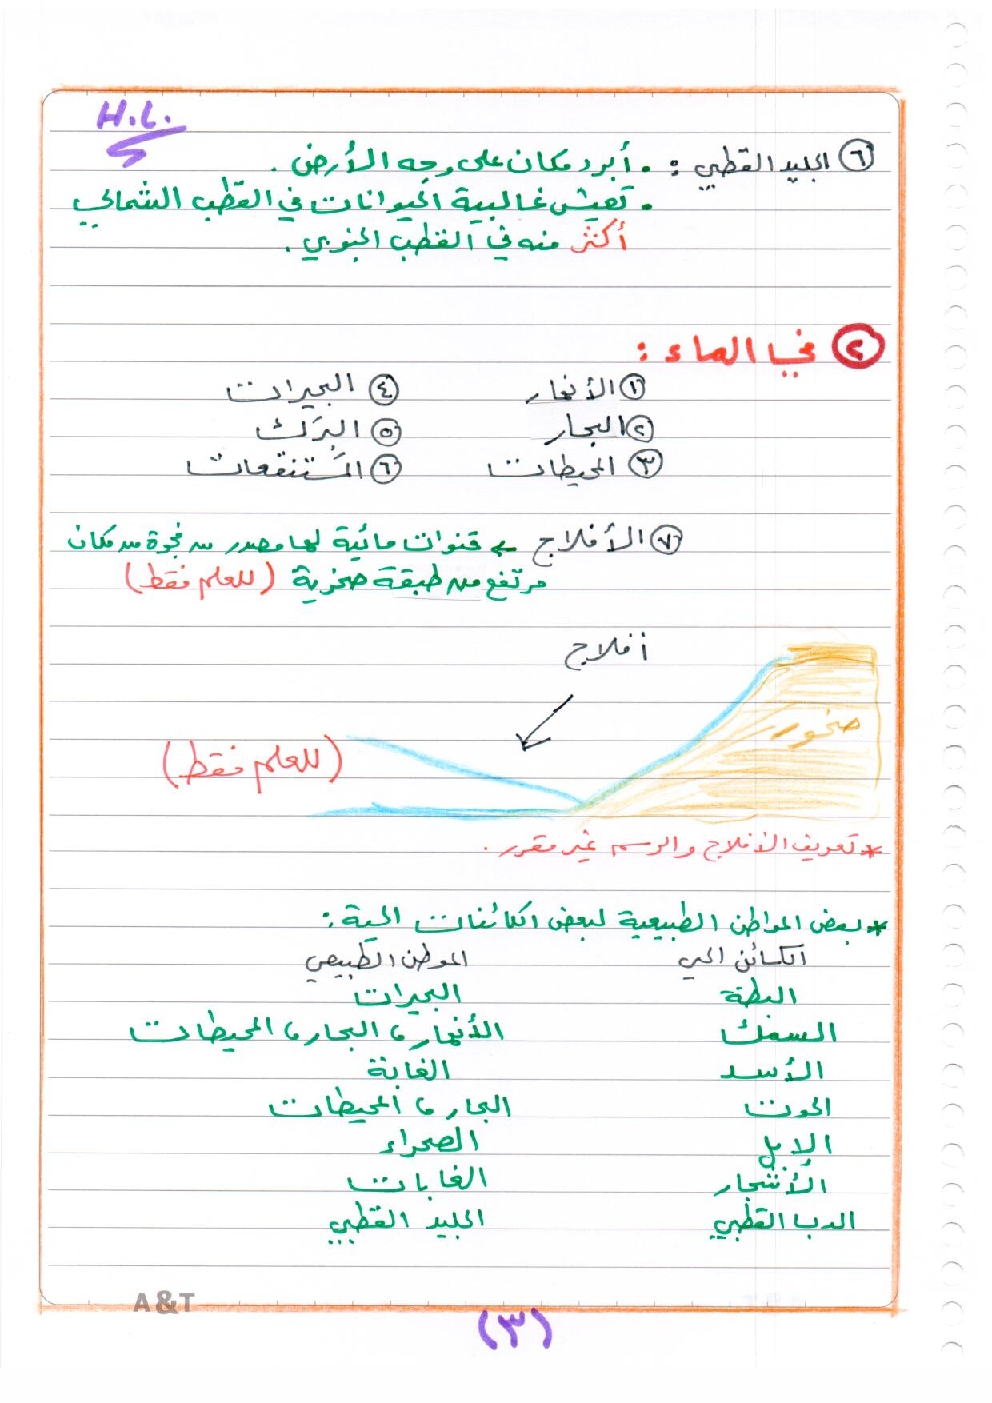 H.L.
٦ الجليد القطبي : . أبرد مكان على وجه الأرض .
. تعيش غالبية الحيوانات في القطب الشمالي
أكثر منه في القطب الجنوبي .
٢ في الماء :
١ الأنهار ٤ البحيرات
٢ البحار ٥ البرَك
٣ المحيطات ٦ المُستنقعات
٧ الأفلاج ← قنوات مائية لها مصدر من فجوة من مكان
مرتفع من طبقة صخرية (للعلم فقط)
أفلاج
صخور
(للعلم فقط)
* تعريف الأفلاج والرسم غير مقرر .
* بعض المواطن الطبيعية لبعض الكائنات الحية :
الكائن الحي الموطن الطبيعي
البطة البحيرات
السمك الأنهار ، البحار ، المحيطات
الأسد الغابة
الحوت البحار ، المحيطات
الإبل الصحراء
الأشجار الغابات
الدب القطبي الجليد القطبي
A&T
(٣)